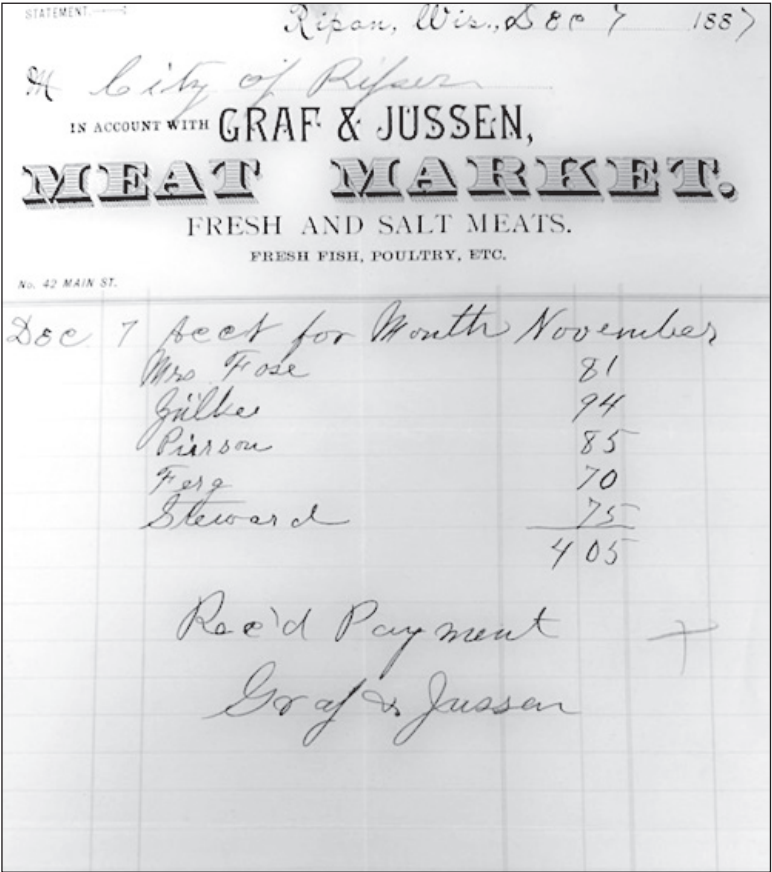 STATEMENT.
Ripon, Wis., Dec 7 1887
M City of Ripon
IN ACCOUNT WITH GRAF & JUSSEN,
MEAT MARKET.
FRESH AND SALT MEATS.
FRESH FISH, POULTRY, ETC.
No. 42 MAIN ST.
Dec 7 Acct for Month November
Mrs Fose 81
Zülke 94
Pierson 85
Ferg 70
Steward 75
4 05
Rec'd Payment
Graf & Jussen